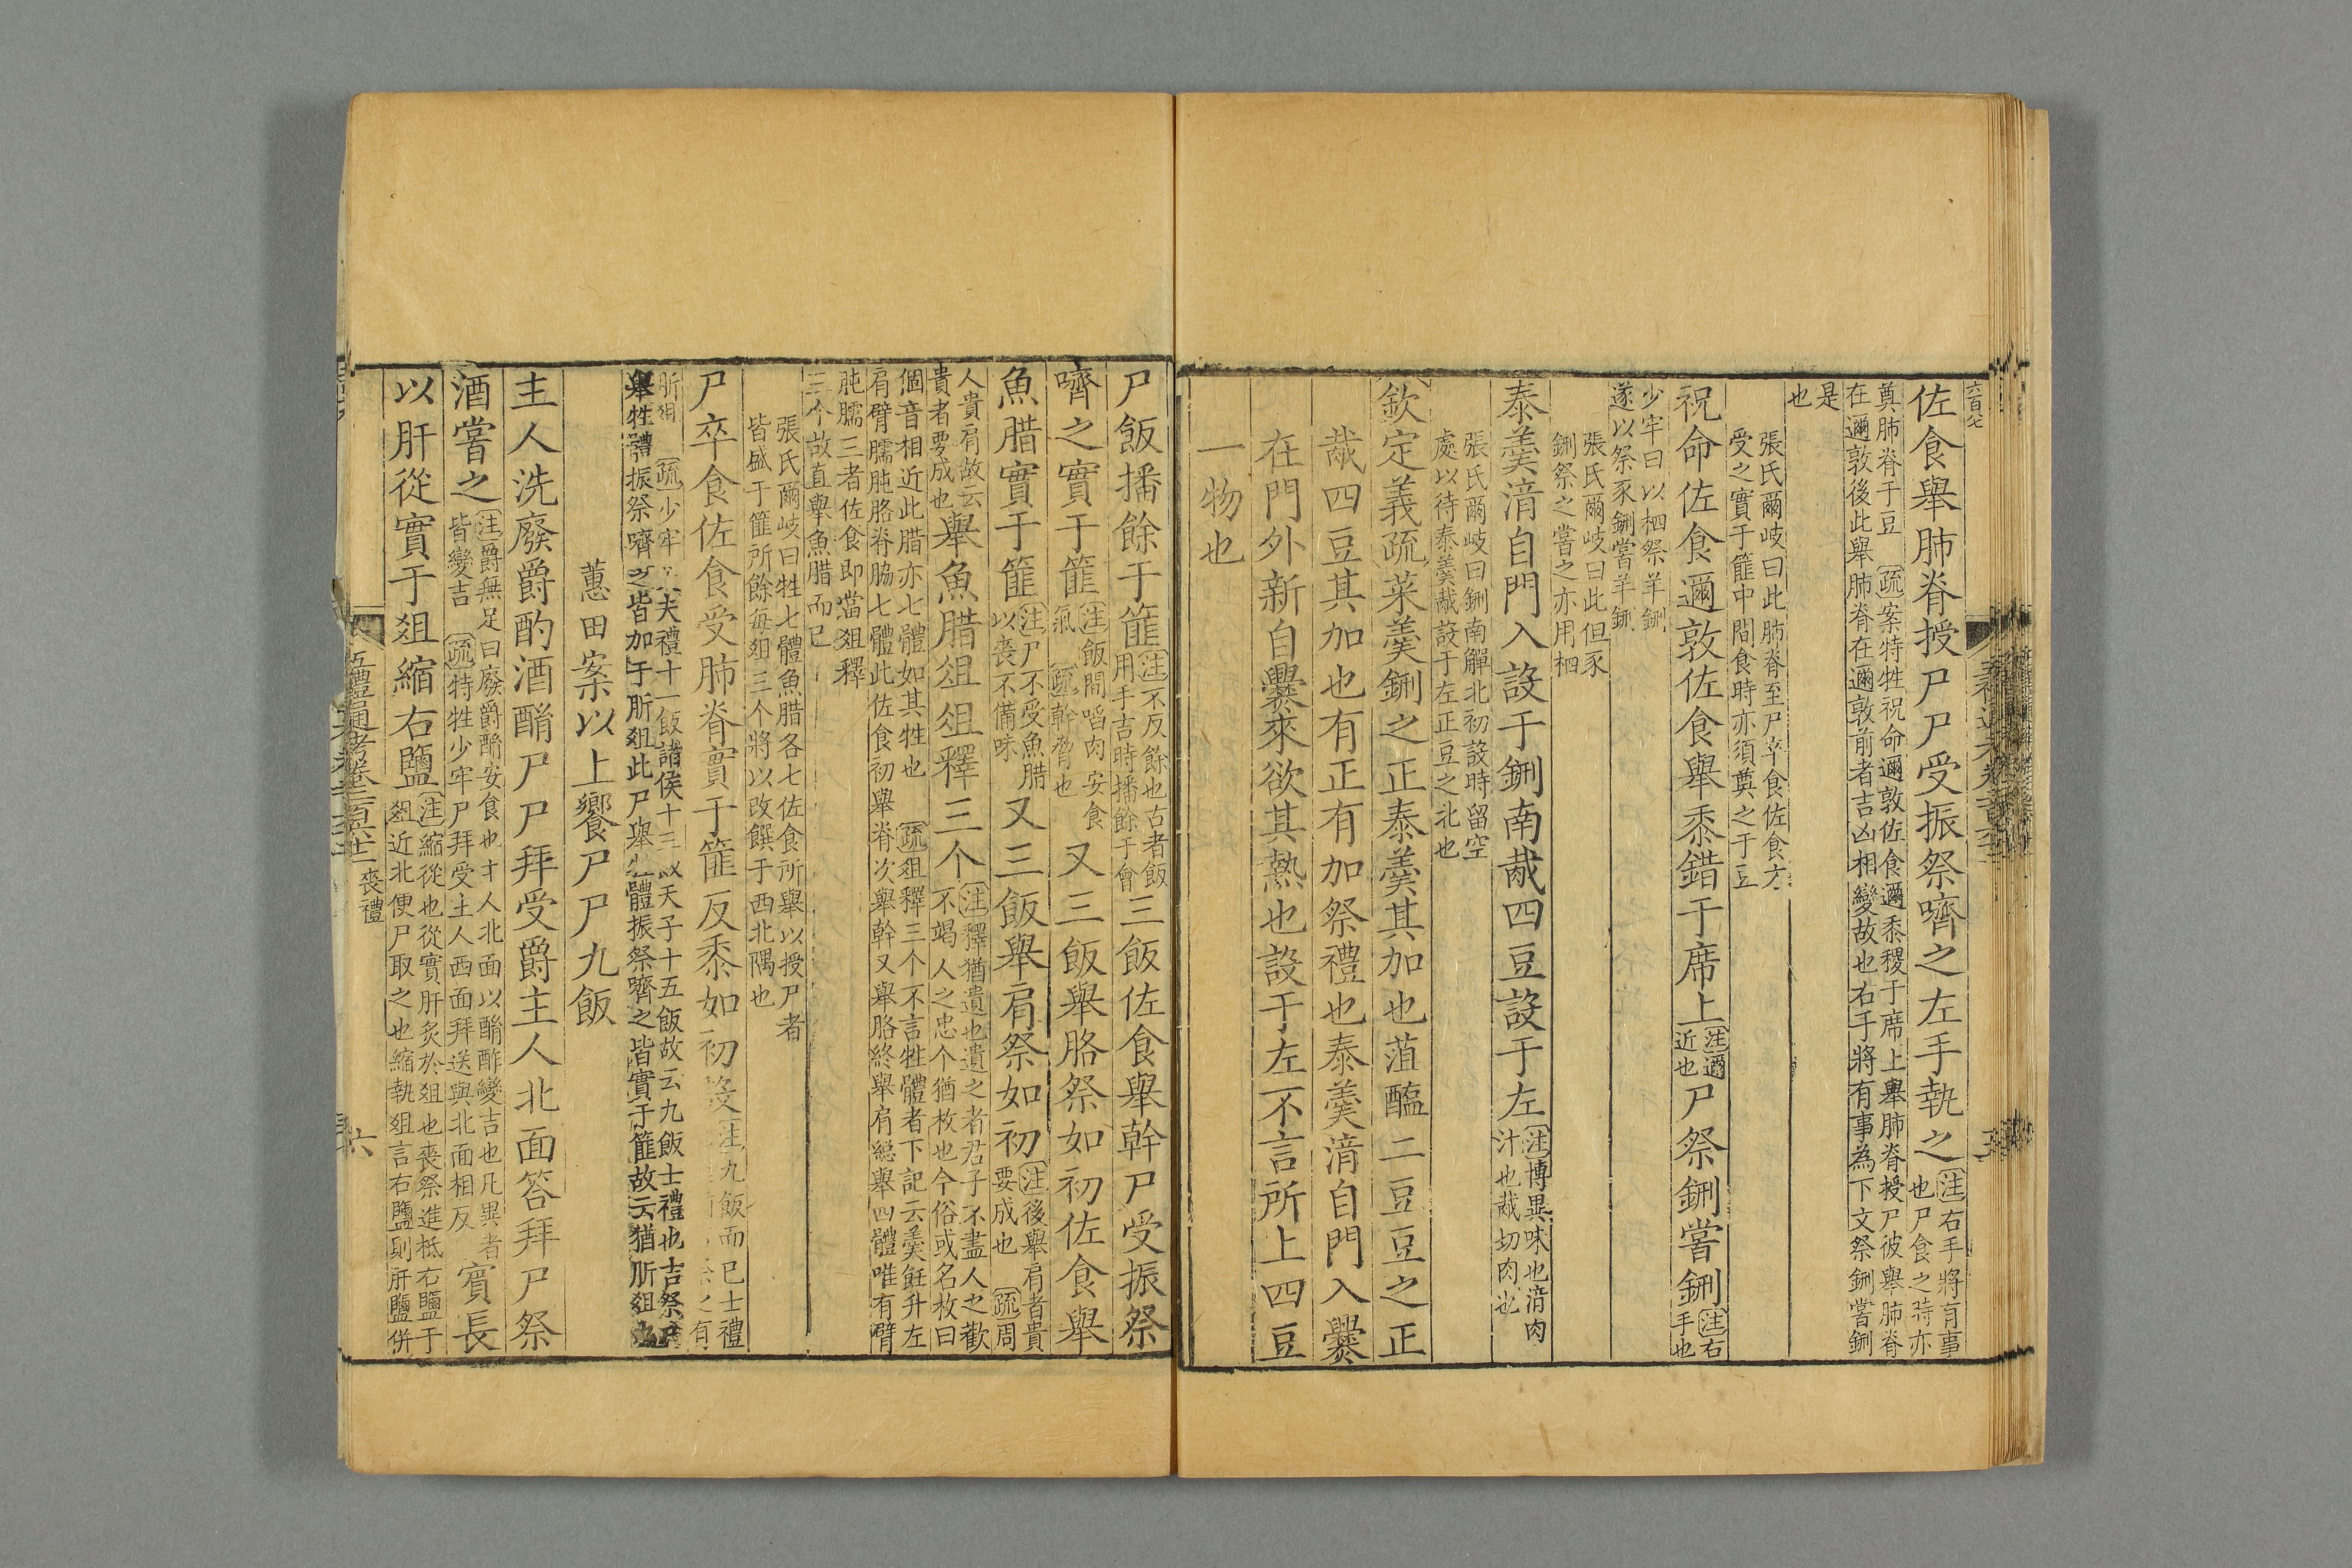 佐食舉肺脊授尸尸受振祭嚌之左手執之注右手將有事也尸食之時亦
奠肺脊于豆 疏案特牲祝命邇敦佐食邇黍稷于席上舉肺脊授尸彼舉肺脊
在邇敦後此舉肺脊在邇敦前者吉凶相變故也右手將有事為下文祭鉶嘗鉶
是也
張氏爾岐曰此肺脊至尸卒食佐食方
受之實于篚中閒食時亦須奠之于豆
祝命佐食邇敦佐食舉黍錯于席上注邇近也尸祭鉶嘗鉶注右手也
少牢曰以柶祭羊鉶
遂以祭豕鉶嘗羊鉶
張氏爾岐曰此但豕
鉶祭之嘗之亦用柶
泰羹湆自門入設于鉶南胾四豆設于左注博異味也湆肉汁也胾切肉也
張氏爾岐曰鉶南觶北初設時留空
處以待泰羹胾設于左正豆之北也
欽定義疏菜羹鉶之正泰羹其加也菹醢二豆豆之正
胾四豆其加也有正有加祭禮也泰羹湆自門入爨
在門外新自爨來欲其熱也設于左不言所上四豆
一物也
尸飯播餘于篚注不反餘也古者飯用手吉時播餘于會三飯佐食舉幹尸受振祭
嚌之實于篚注飯閒啗肉安食氣 疏幹脅也又三飯舉胳祭如初佐食舉
魚腊實于篚注尸不受魚腊以喪不備味又三飯舉肩祭如初注後舉肩者貴要成也 疏周
人貴肩故云
貴者要成也舉魚腊俎俎釋三个注釋猶遺也遺之者君子不盡人之歡不竭人之忠个猶枚也今俗或名枚曰
個音相近此腊亦七體如其牲也 疏俎釋三个不言牲體者下記云羹飪升左
肩臂臑肫胳脊脇七體此佐食初舉脊次舉幹又舉胳終舉肩總舉四體唯有臂
肫臑三者佐食即當俎釋
三个故直舉魚腊而已
張氏爾岐曰牲七體魚腊各七佐食所舉以授尸者
皆盛于篚所餘每俎三个將以改饌于西北隅也
尸卒食佐食受肺脊實于篚反黍如初設注九飯而已士禮也
肵俎 疏少牢大夫禮十一飯諸侯十三飯天子十五飯故云九飯士禮也吉祭尸
舉牲體振祭嚌之皆加于肵俎此尸舉牲體振祭嚌之皆實于篚故云猶肵俎也
蕙田案以上饗尸尸九飯
主人洗廢爵酌酒酳尸尸拜受爵主人北面答拜尸祭
酒嘗之注爵無足曰廢爵酳安食也主人北面以酳酢變吉也凡異者皆變吉 疏特牲少牢尸拜受主人西面拜送與北面相反賓長
以肝從實于俎縮右鹽注縮從也從實肝炙於俎也喪祭進柢右鹽于俎近北便尸取之也縮執俎言右鹽則肝鹽併
五禮通考卷二百六十二 喪禮
六